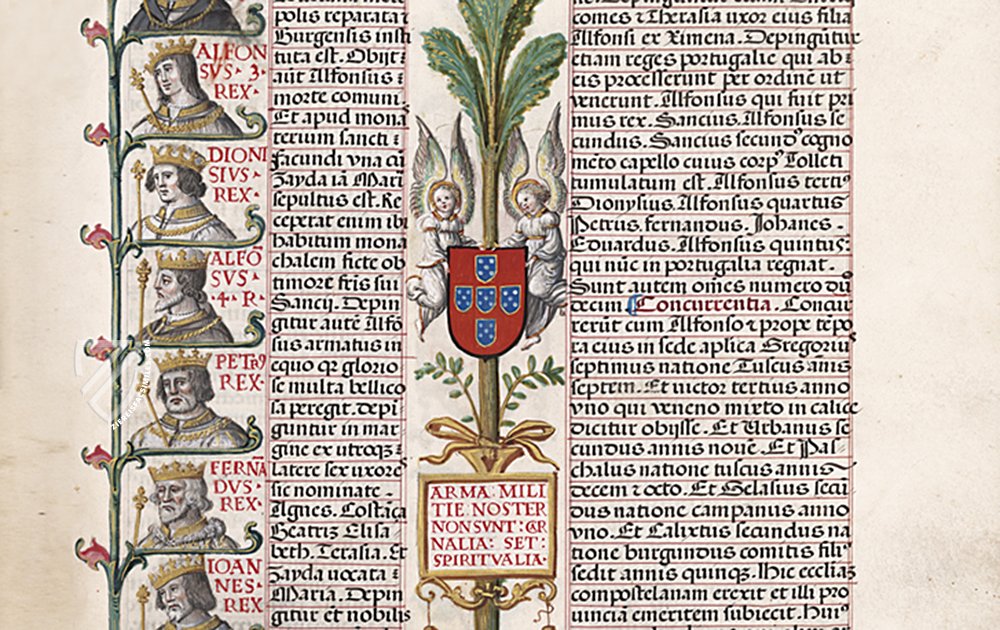 ALFON
SVS · 3 ·
REX ·
DIONI
SIVS ·
REX ·
ALFŌ
SVS ·
· 4 · R ·
PETRꝰ
REX ·
FERNĀ
DVS ·
REX ·
IOAN
NES ·
REX
polis reparata ⁊
Burgensis insti
tuta est. Obijt ⁊
aūt Alfonsus ⁊
morte comuni
Et apud mona
terium sancti ⁊
facundi vna cū
Zayda iā Mari
sepultus est. Re
ceperat enim ibi
habitum mona
chalem ficte ob
timore fris sui
Sancij. Depin
gitur autē Alfō
sus armatus in
equo qr̄ glorio
se multa bellico
sa peregit. depi
guntur in mar
gine ex utroqꝫ
latere sex uxores
sic nominate .
Agnes. Costāca
Beatrix Elisa
beth. Terasia. Et
Zayda uocata ⁊
Maria. Depin
gitur et nobilis
ARMA : MILI
TIE NOSTER
NON SVNT : CAR
NALIA : SET :
SPIRITVALIA ·
comes ⁊ Therasia uxor eius filia
Alfonsi ex Ximena. Depingūtur
etiam reges portugalie qui ab ⁊
eis processerunt per ordinē ut
venerunt. Alfonsus qui fuit pri
mus rex. Sancius. Alfonsus se
cundus. Sancius secundꝰ cogno
mēto capello cuius corpꝰ Tolleti
tumulatum est. Alfonsus tertiꝰ
Dionysius. Alfonsus quartus
Petrus. fernandus. Johanes .
Eduardus. Alfonsus quintus:
qui nūc in portugalia regnat .
Sunt autem om̄es numero du
decim Concurrentia. Concur
rerūt cum Alfonso ⁊ prope tēpo
ra eius in sede aplica Gregoriꝰ
septimus natione Tuscus anis
septem. Et victor tertius anno
vno qui veneno mixto in calice
dicitur obijsse. Et Urbanus se
cundus annis nouē. Et Pas
chalus natione tuscus annis
decem ⁊ octo. Et Gelasius secū
dus natione campanus anno
vno. Et Calixtus secundus na
tione burgundus comitis filiꝰ
sedit annis quinqꝫ. Hic eccliaꝫ
compostelanam erexit et illi pro
uinciā emeritem subiecit. Huiꝰ